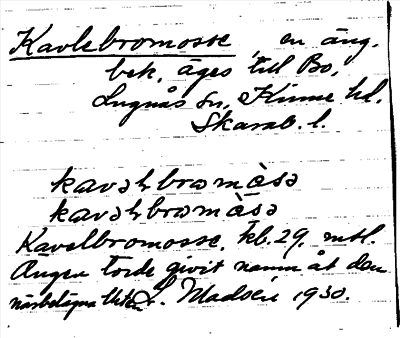 Kavlebromosse, en äng,
bek. äges till Bo,
Lugnås sn, Kinne hd.
Skarab. l.
kavəlbromåsə
kavəlbromåsə
Kavelbromosse, kb. 29, mtl.
Ängen torde givit namn åt den
närbelägna
L. Madsén 1930.